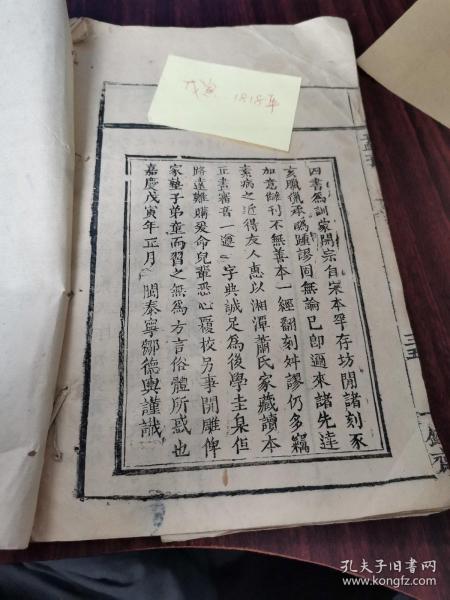 戊寅 1818年
四書為訓蒙開宗自宋本罕存坊閒諸刻豕
亥臘獵承譌踵謬固無論已即邇來諸先達
加意讎刊不無善本一經翻刻舛謬仍多竊
素病之近得友人惠以湘潭蕭氏家藏讀本
正書審音一遵 字典誠足為後學圭臬但
路遠難購爰命兒輩悉心覆校另事開雕俾
家塾子弟童而習之無為方言俗體所惑也
嘉慶戊寅年正月 閩泰寧鄒德輿謹識
孔夫子旧书网
www.kongfz.com